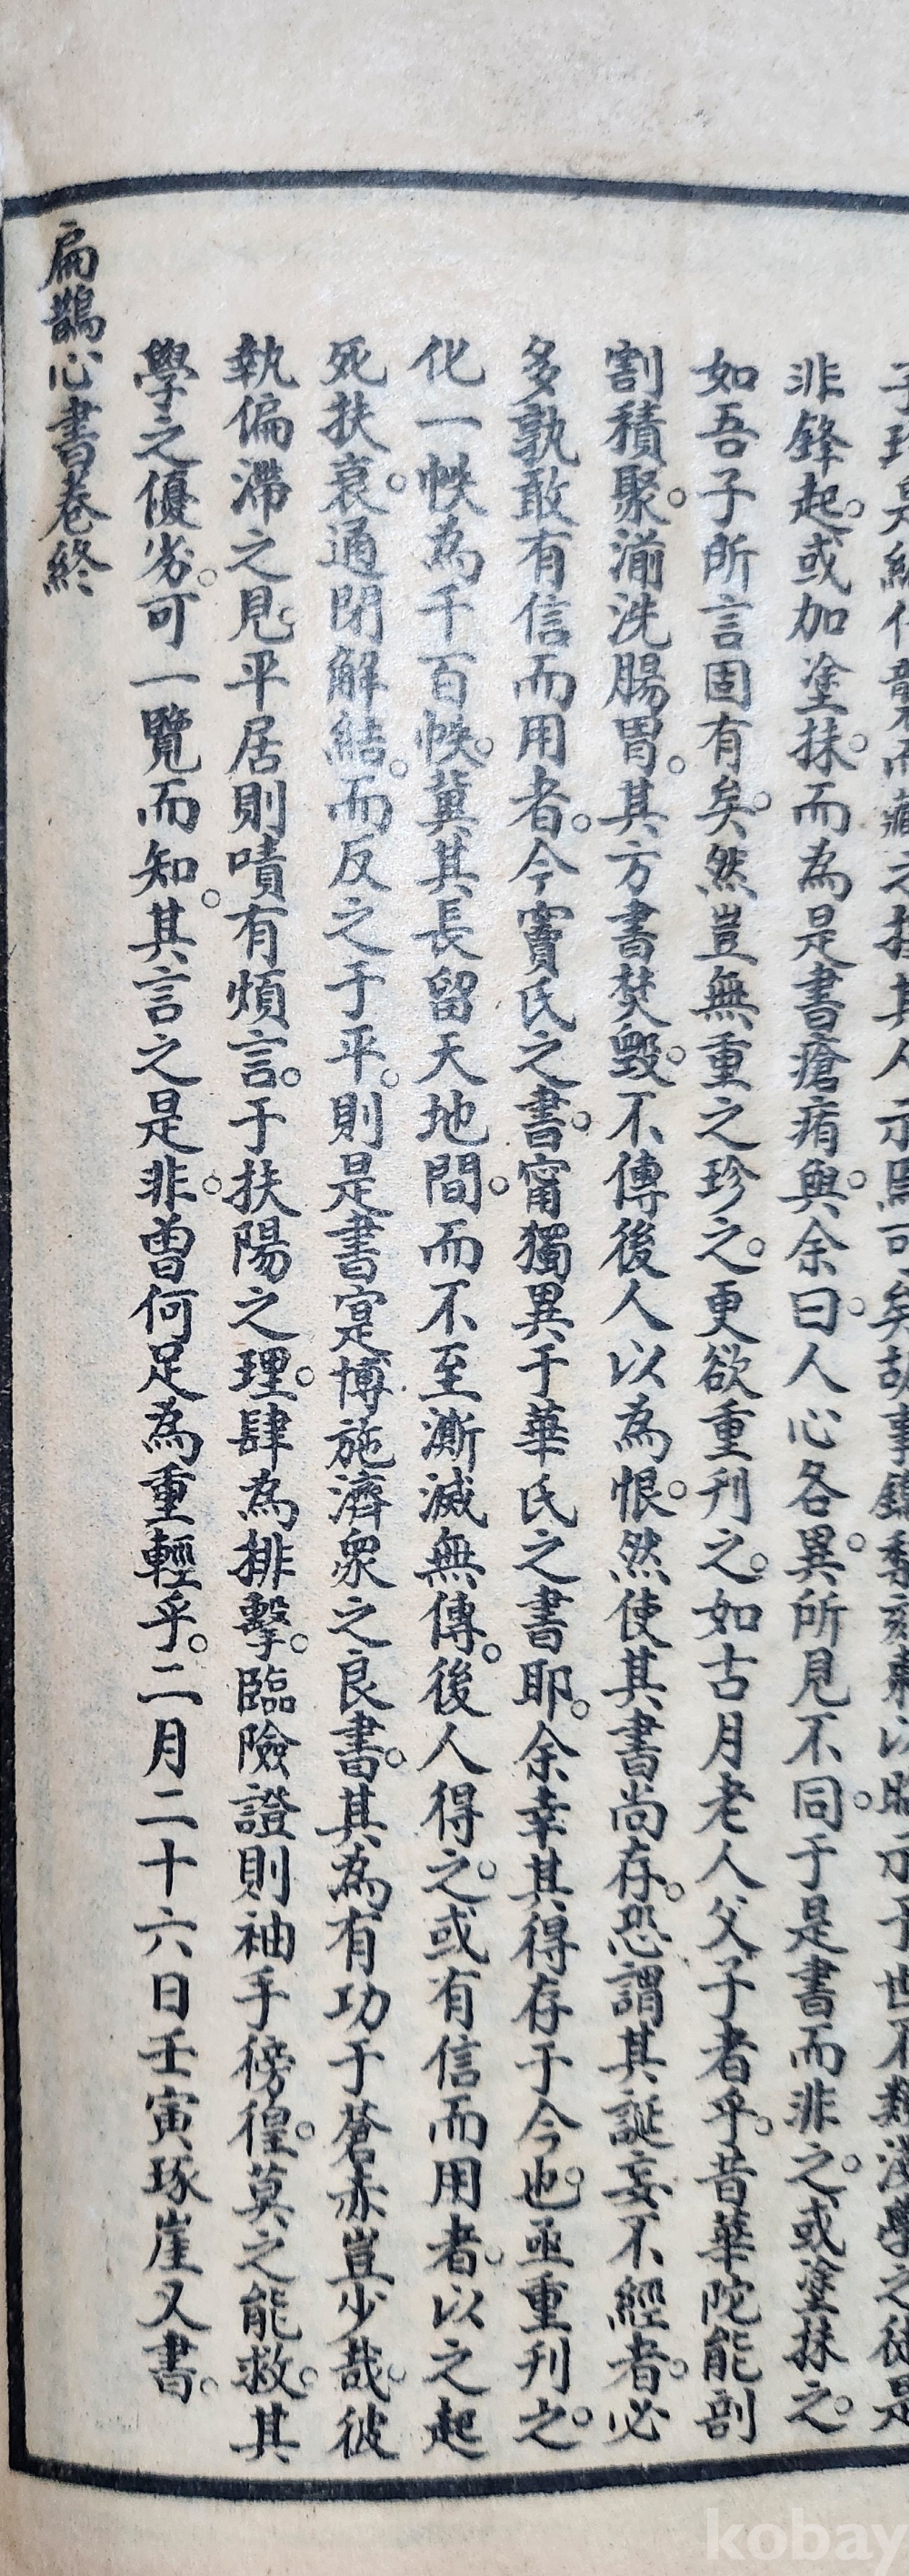 非鋒起。或加塗抹。而為是書瘡痏與。余曰。人心各異。所見不同。于是書而非之。或塗抹之。
如吾子所言固有矣。然豈無重之珍之。更欲重刊之。如古月老人父子者乎。昔華陀能剖
割積聚。湔洗腸胃。其方書焚毀。不傳後人以為恨。然使其書尚存。恐謂其誕妄不經者。必
多孰敢有信而用者。今竇氏之書。甯獨異于華氏之書耶。余幸其得存于今也。亟重刊之。
化一帙為千百帙。冀其長留天地間。而不至澌滅無傳。後人得之。或有信而用者。以之起
死扶衰。通閉解結。而反之于平。則是書寔博施濟眾之良書。其為有功于蒼赤豈少哉。彼
執偏滯之見。平居則嘖有煩言。于扶陽之理。肆為排擊。臨險證則袖手徬徨。莫之能救。其
學之優劣。可一覽而知。其言之是非。曾何足為重輕乎。二月二十六日壬寅琢崖又書。
扁鵲心書卷終
kobay